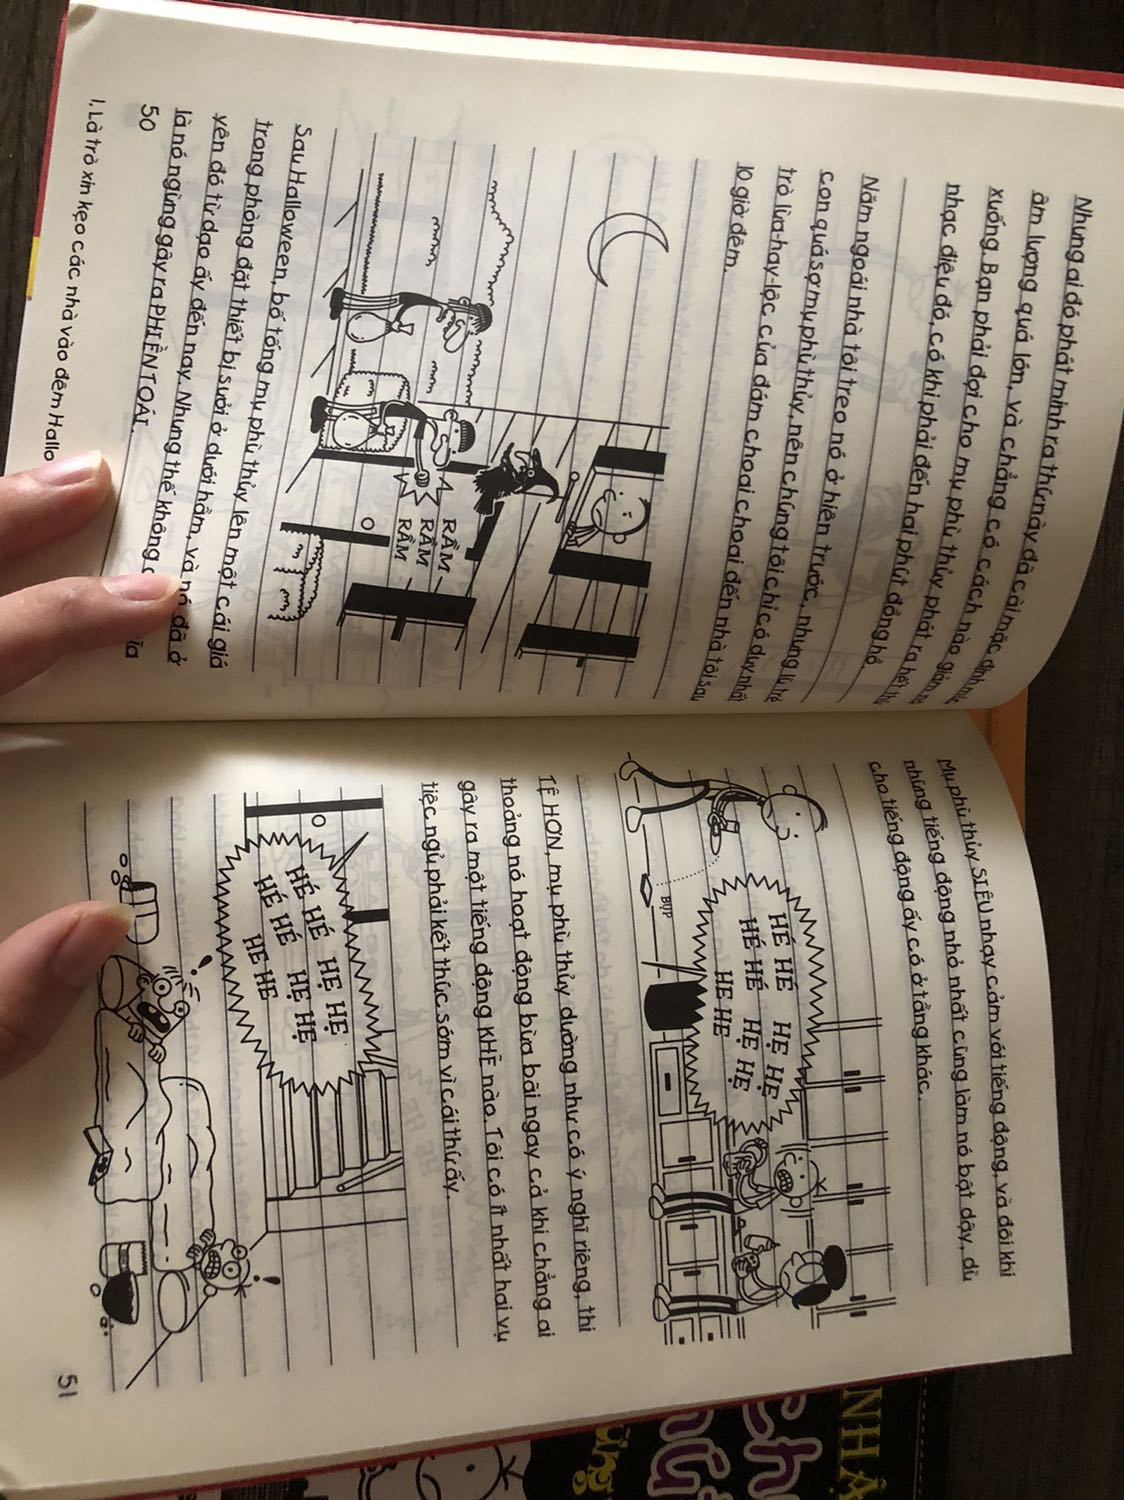 Nhưng ai đó phát minh ra thứ này đã cài mặc định mức
âm lượng quá lớn, và chẳng có cách nào giảm nó
xuống. Bạn phải đợi cho mụ phù thủy phát ra hết thứ
nhạc điệu đó, có khi phải đến hai phút đồng hồ
Năm ngoái nhà tôi treo nó ở hiên trước, nhưng lũ trẻ
con quá sợ mụ phù thủy, nên chúng tôi chỉ có duy nhất
trò lừa-hay-lộc của đám choai choai đến nhà tôi sau
10 giờ đêm.
RẦM
RẦM
RẦM
Sau Halloween, bố tống mụ phù thủy lên một cái giá
trong phòng đặt thiết bị sưởi ở dưới hầm, và nó đã ở
yên đó từ dạo ấy đến nay. Nhưng thế không
là nó ngừng gây ra PHIỀN TOÁI.
50
1. Là trò xin kẹo các nhà vào đêm
Mụ phù thủy SIÊU nhạy cảm với tiếng động, và đôi khi
những tiếng động nhỏ nhất cũng làm nó bật dậy, dù
cho tiếng động ấy có ở tầng khác.
BỤP
HÉ HÉ HẸ HẸ
HÉ HÉ HẸ HẸ
HE HE
TỆ HƠN, mụ phù thủy dường như có ý nghĩ riêng, thi
thoảng nó hoạt động bừa bãi ngay cả khi chẳng ai
gây ra một tiếng động KHẼ nào. Tôi có ít nhất hai vụ
tiệc ngủ phải kết thúc sớm vì cái thứ ấy.
HÉ HÉ HẸ HẸ
HÉ HÉ HẸ HẸ
HE HE
51